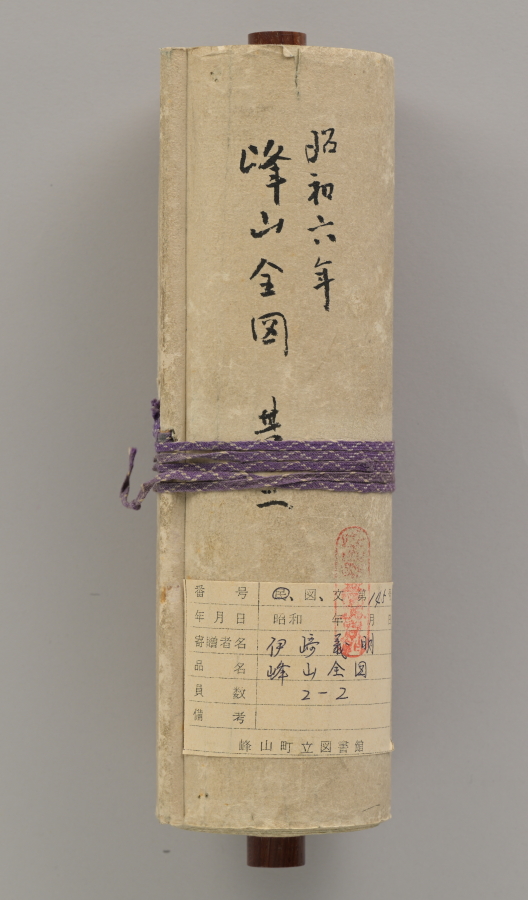 昭和六年
峰山全図 其二
番号 民、図、文 第145号
年月日 昭和 年 月 日
寄贈者名 伊﨑義明
品名 峰山全図
員数 2-2
備考
峰山町立図書館